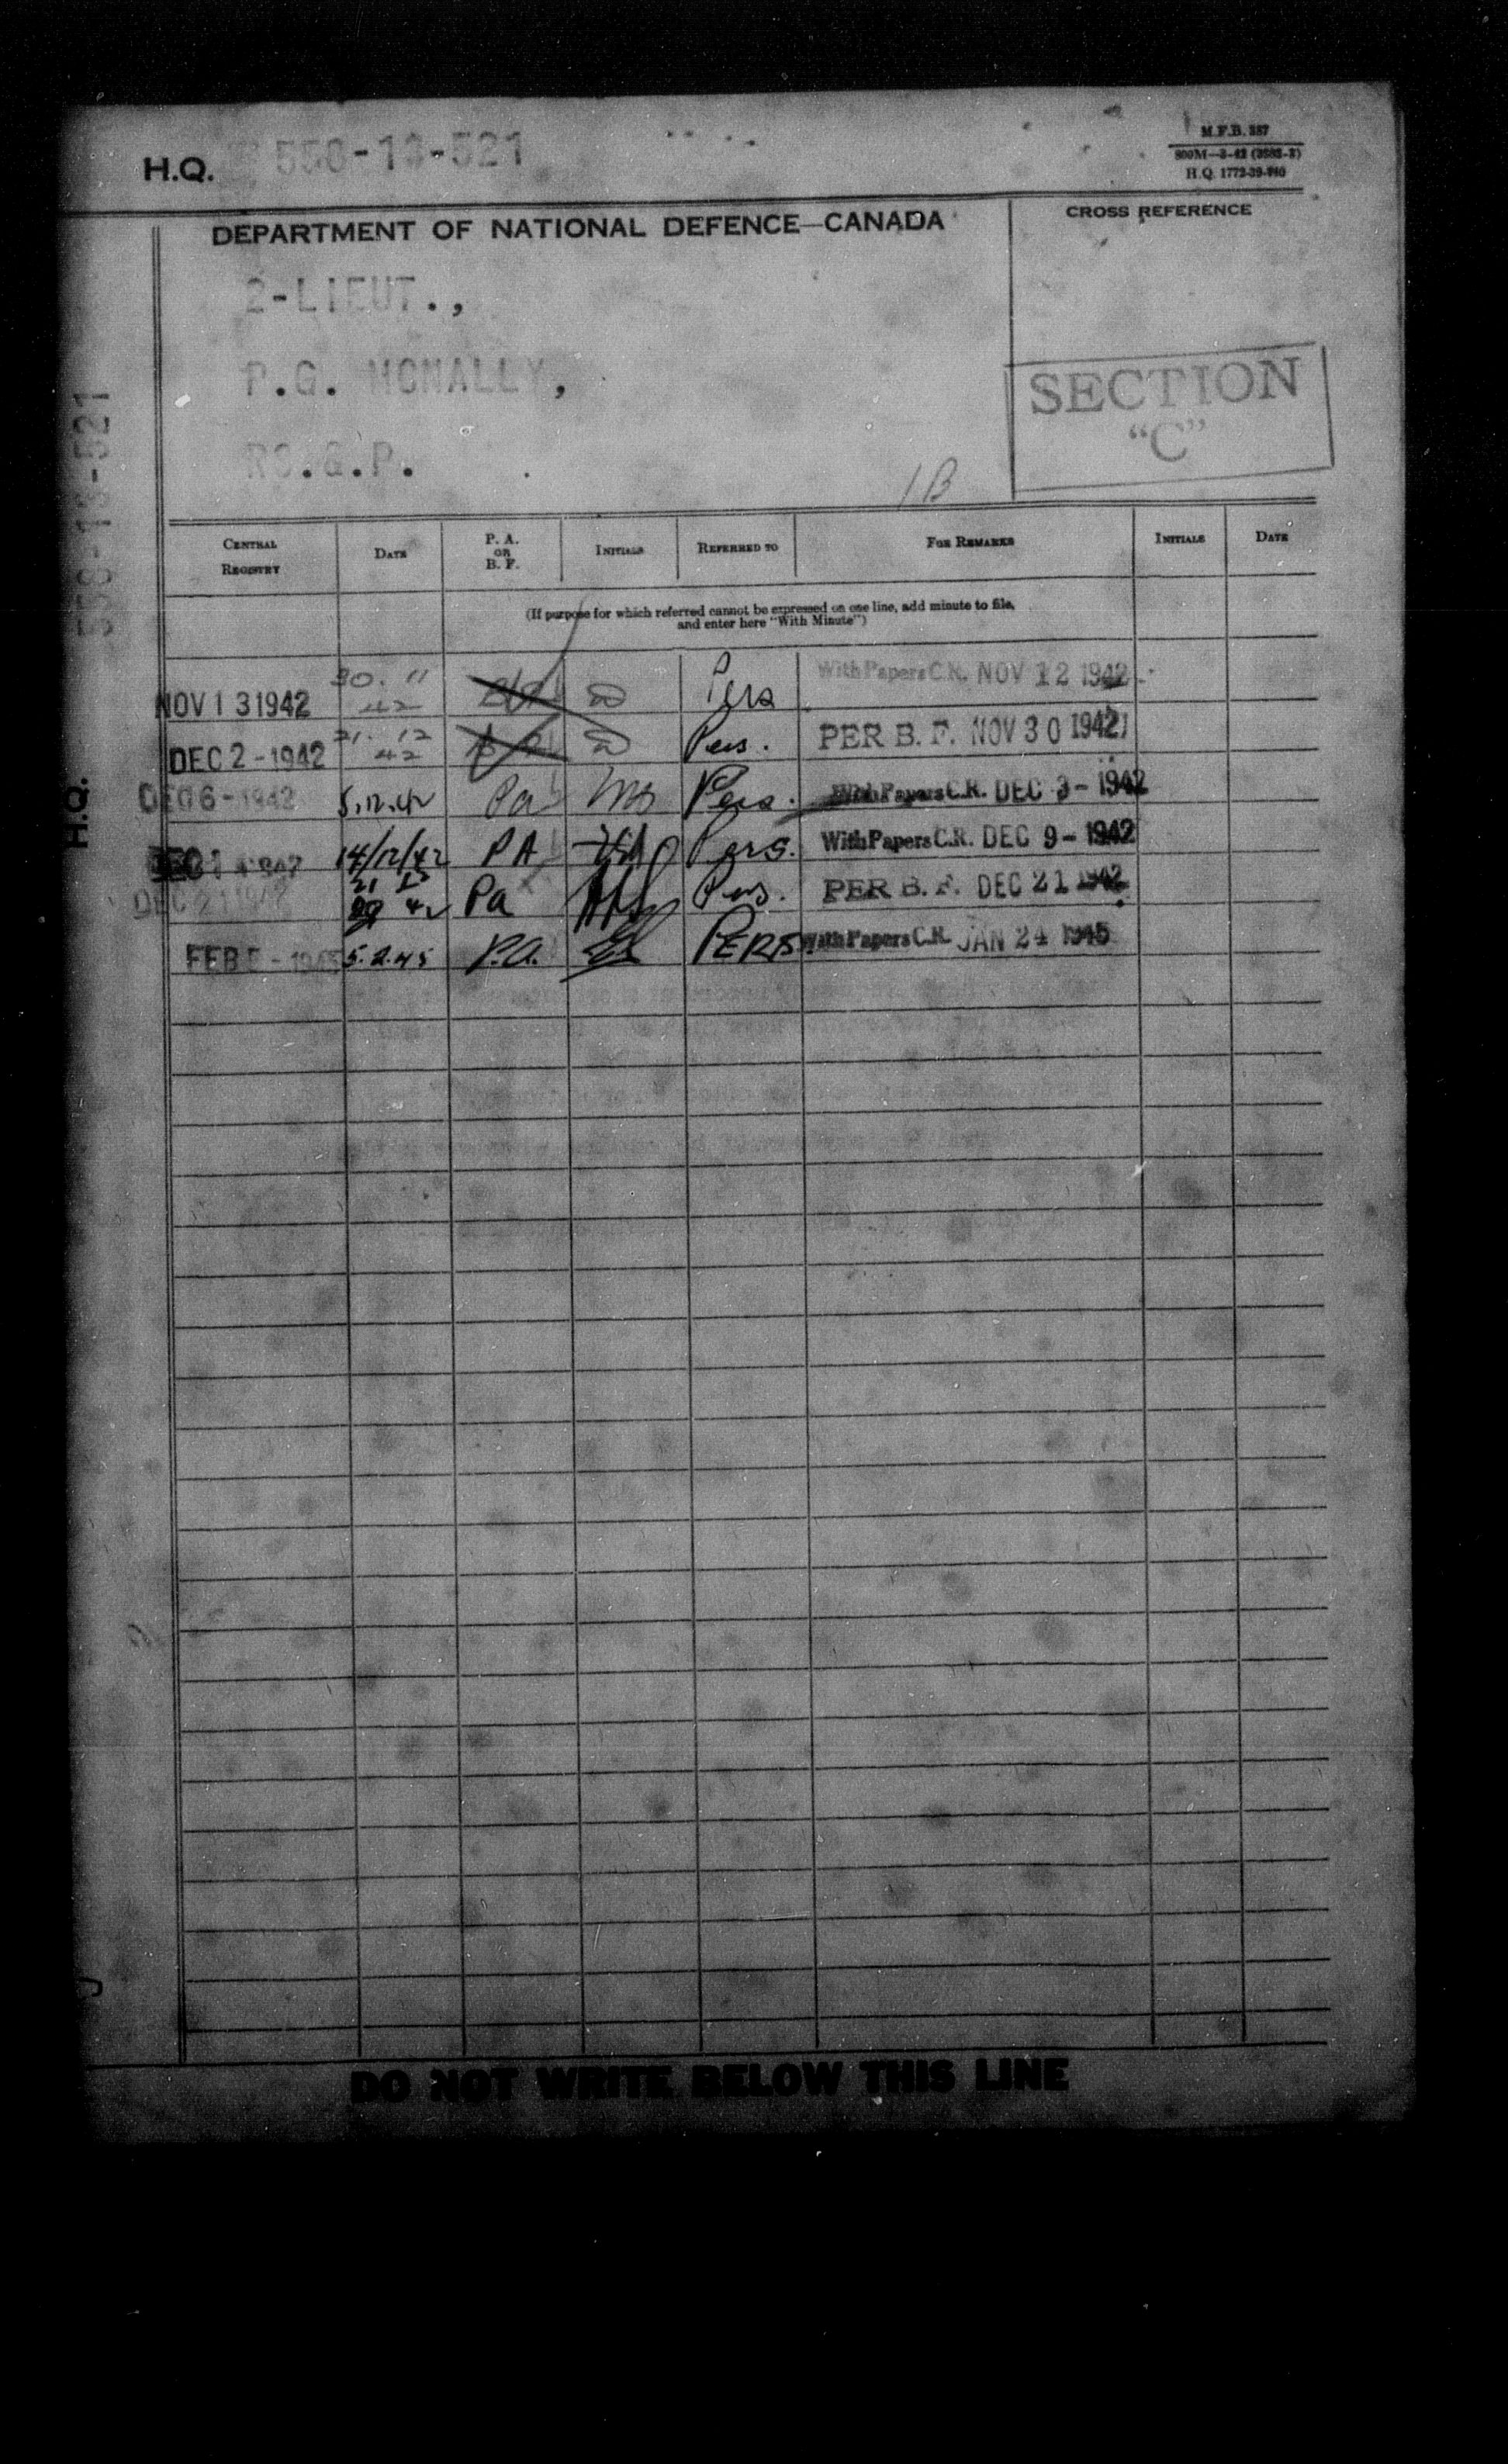 H.Q. 558-13-521
M.F.B. 887
800M—3-42 (3582-3)
H.Q. 1772-39-940
DEPARTMENT OF NATIONAL DEFENCE—CANADA
CROSS REFERENCE
2-LIEUT.,
P.G. MCNALLY,
RC.G.P.
SECTION
"C"
1B
558-13-521
H.Q.
CENTRAL REGISTRY DATE P. A. OR B. F. INITIALS REFERRED TO FOR REMARKS INITIALS DATE
(If purpose for which referred cannot be expressed on one line, add minute to file,
and enter here "With Minute")
NOV 13 1942 30.11 42 Pers With Papers C.R. NOV 12 1942
DEC 2-1942 21.12 42 Pers. PER B. F. NOV 30 1942
DEC 6-1942 5.12.42 Pa Pers. With Papers C.R. DEC 3-1942
14/12/42 PA Pers. With Papers C.R. DEC 9-1942
DEC 21 1942 21 12 42 Pa Pers. PER B. F. DEC 21 1942
FEB 5-1945 5.2.45 P.A. PERS. With Papers C.R. JAN 24 1945
DO NOT WRITE BELOW THIS LINE